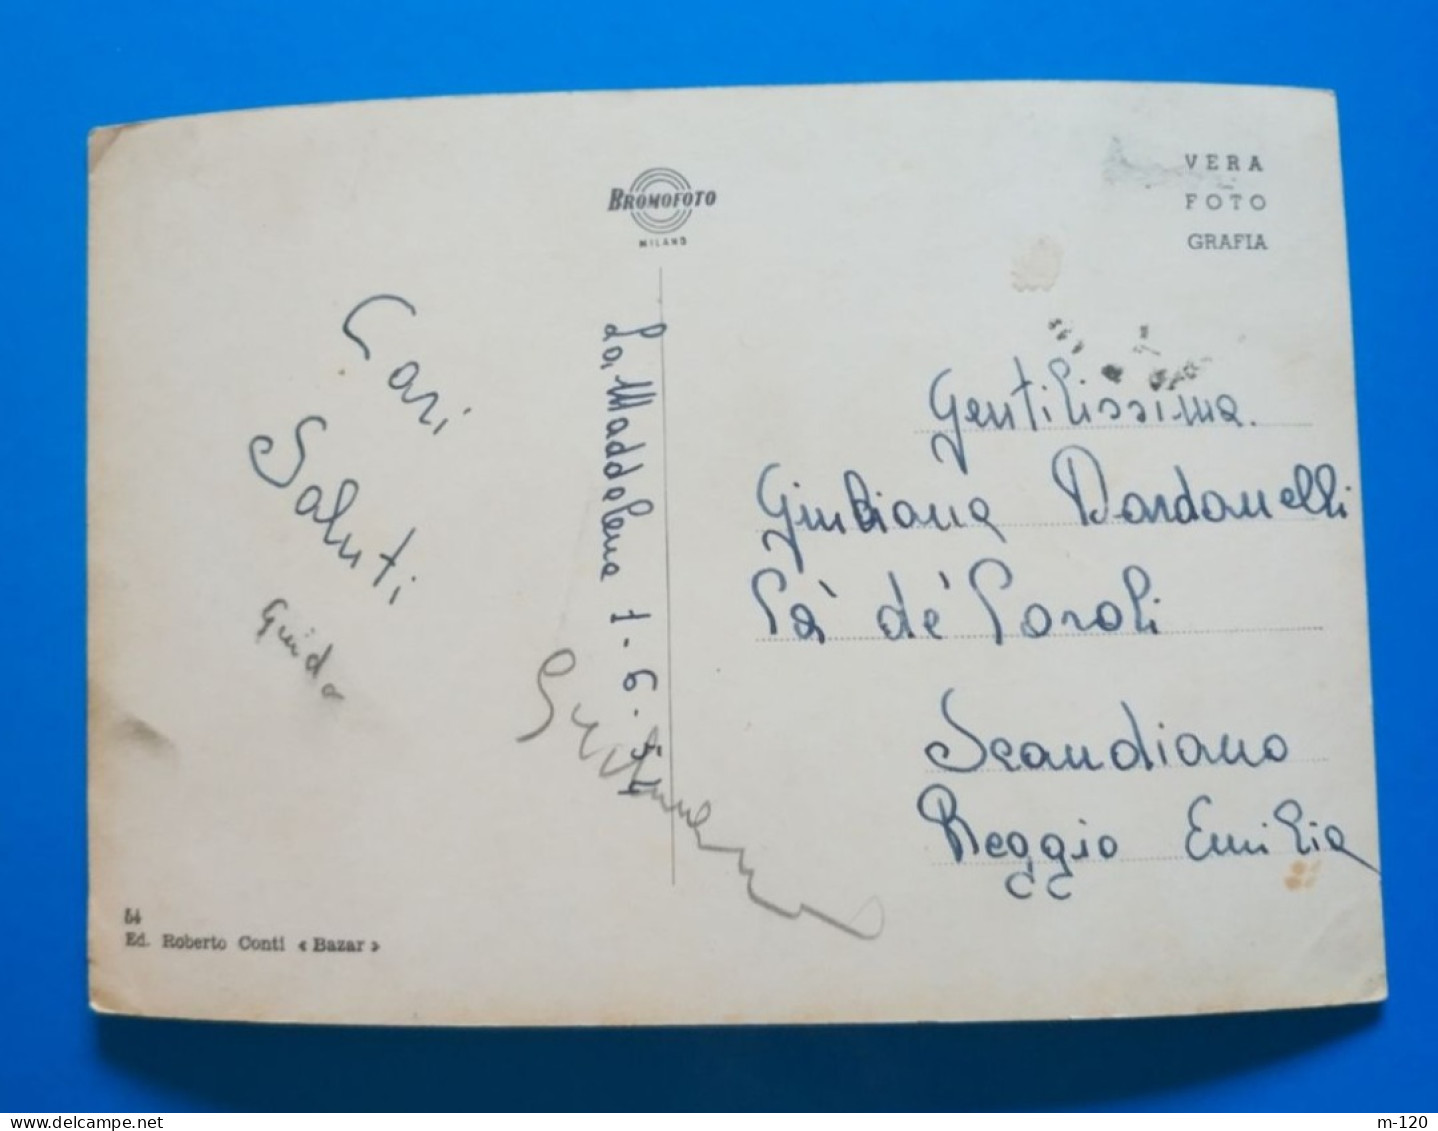 BROMOFOTO
MILANO
VERA
FOTO
GRAFIA
Cari
Saluti
Guido
La Maddalena 1-6-
Gentilissima.
Giuliana Dardanelli
Cà dè Caroli
Scandiano
Reggio Emilia
54
Ed. Roberto Conti « Bazar »
www.delcampe.net
m-120